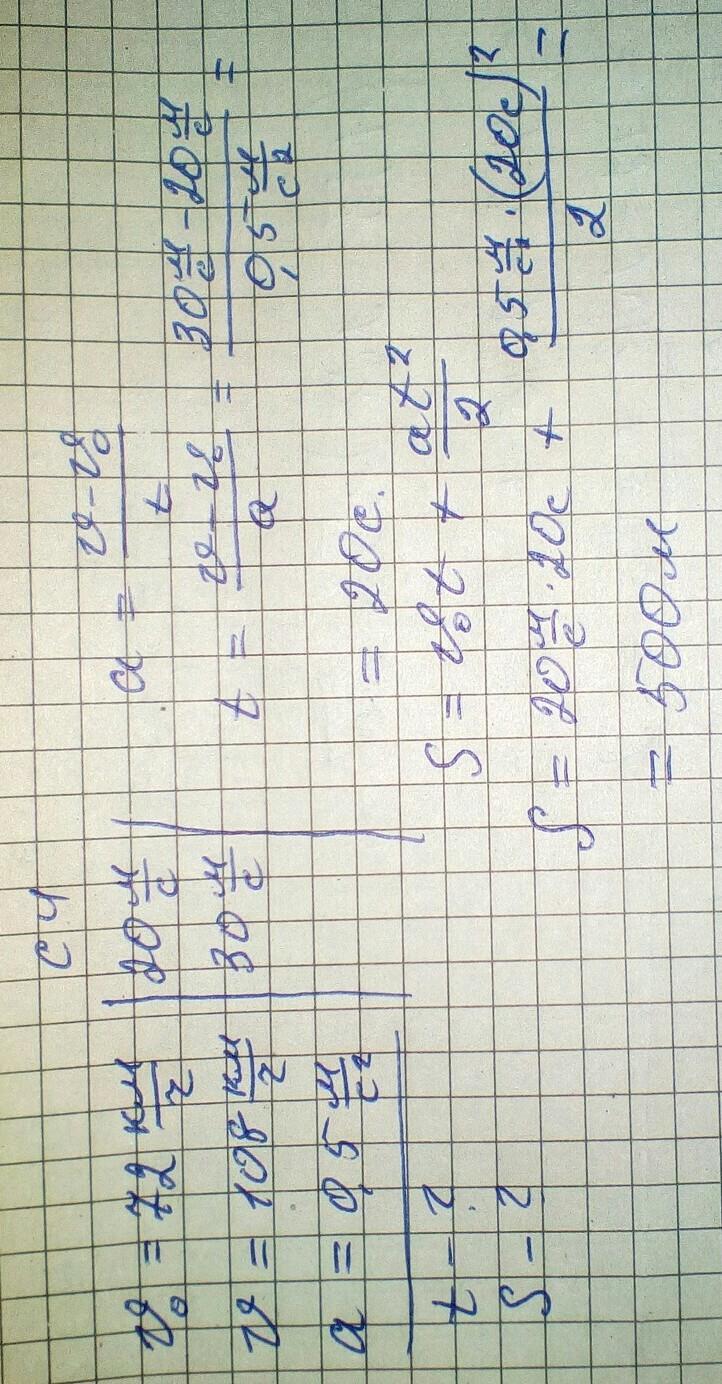 СИ
υ₀ = 72 км/г
20 м/с
υ = 108 км/г
30 м/с
a = 0,5 м/с²
t - ?
S - ?
a = (υ - υ₀)/t
t = (υ - υ₀)/a = (30 м/с - 20 м/с)/(0,5 м/с²) =
= 20с.
S = υ₀t + at²/2
S = 20 м/с · 20с + (0,5 м/с² · (20с)²)/2 =
= 500м